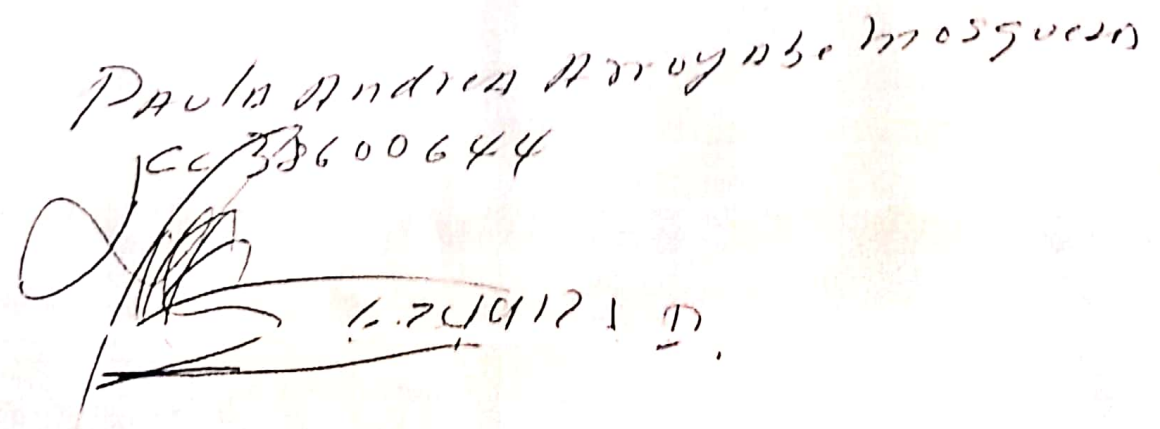 Paula Andrea Arroyabe Mosquera
CC 38600644